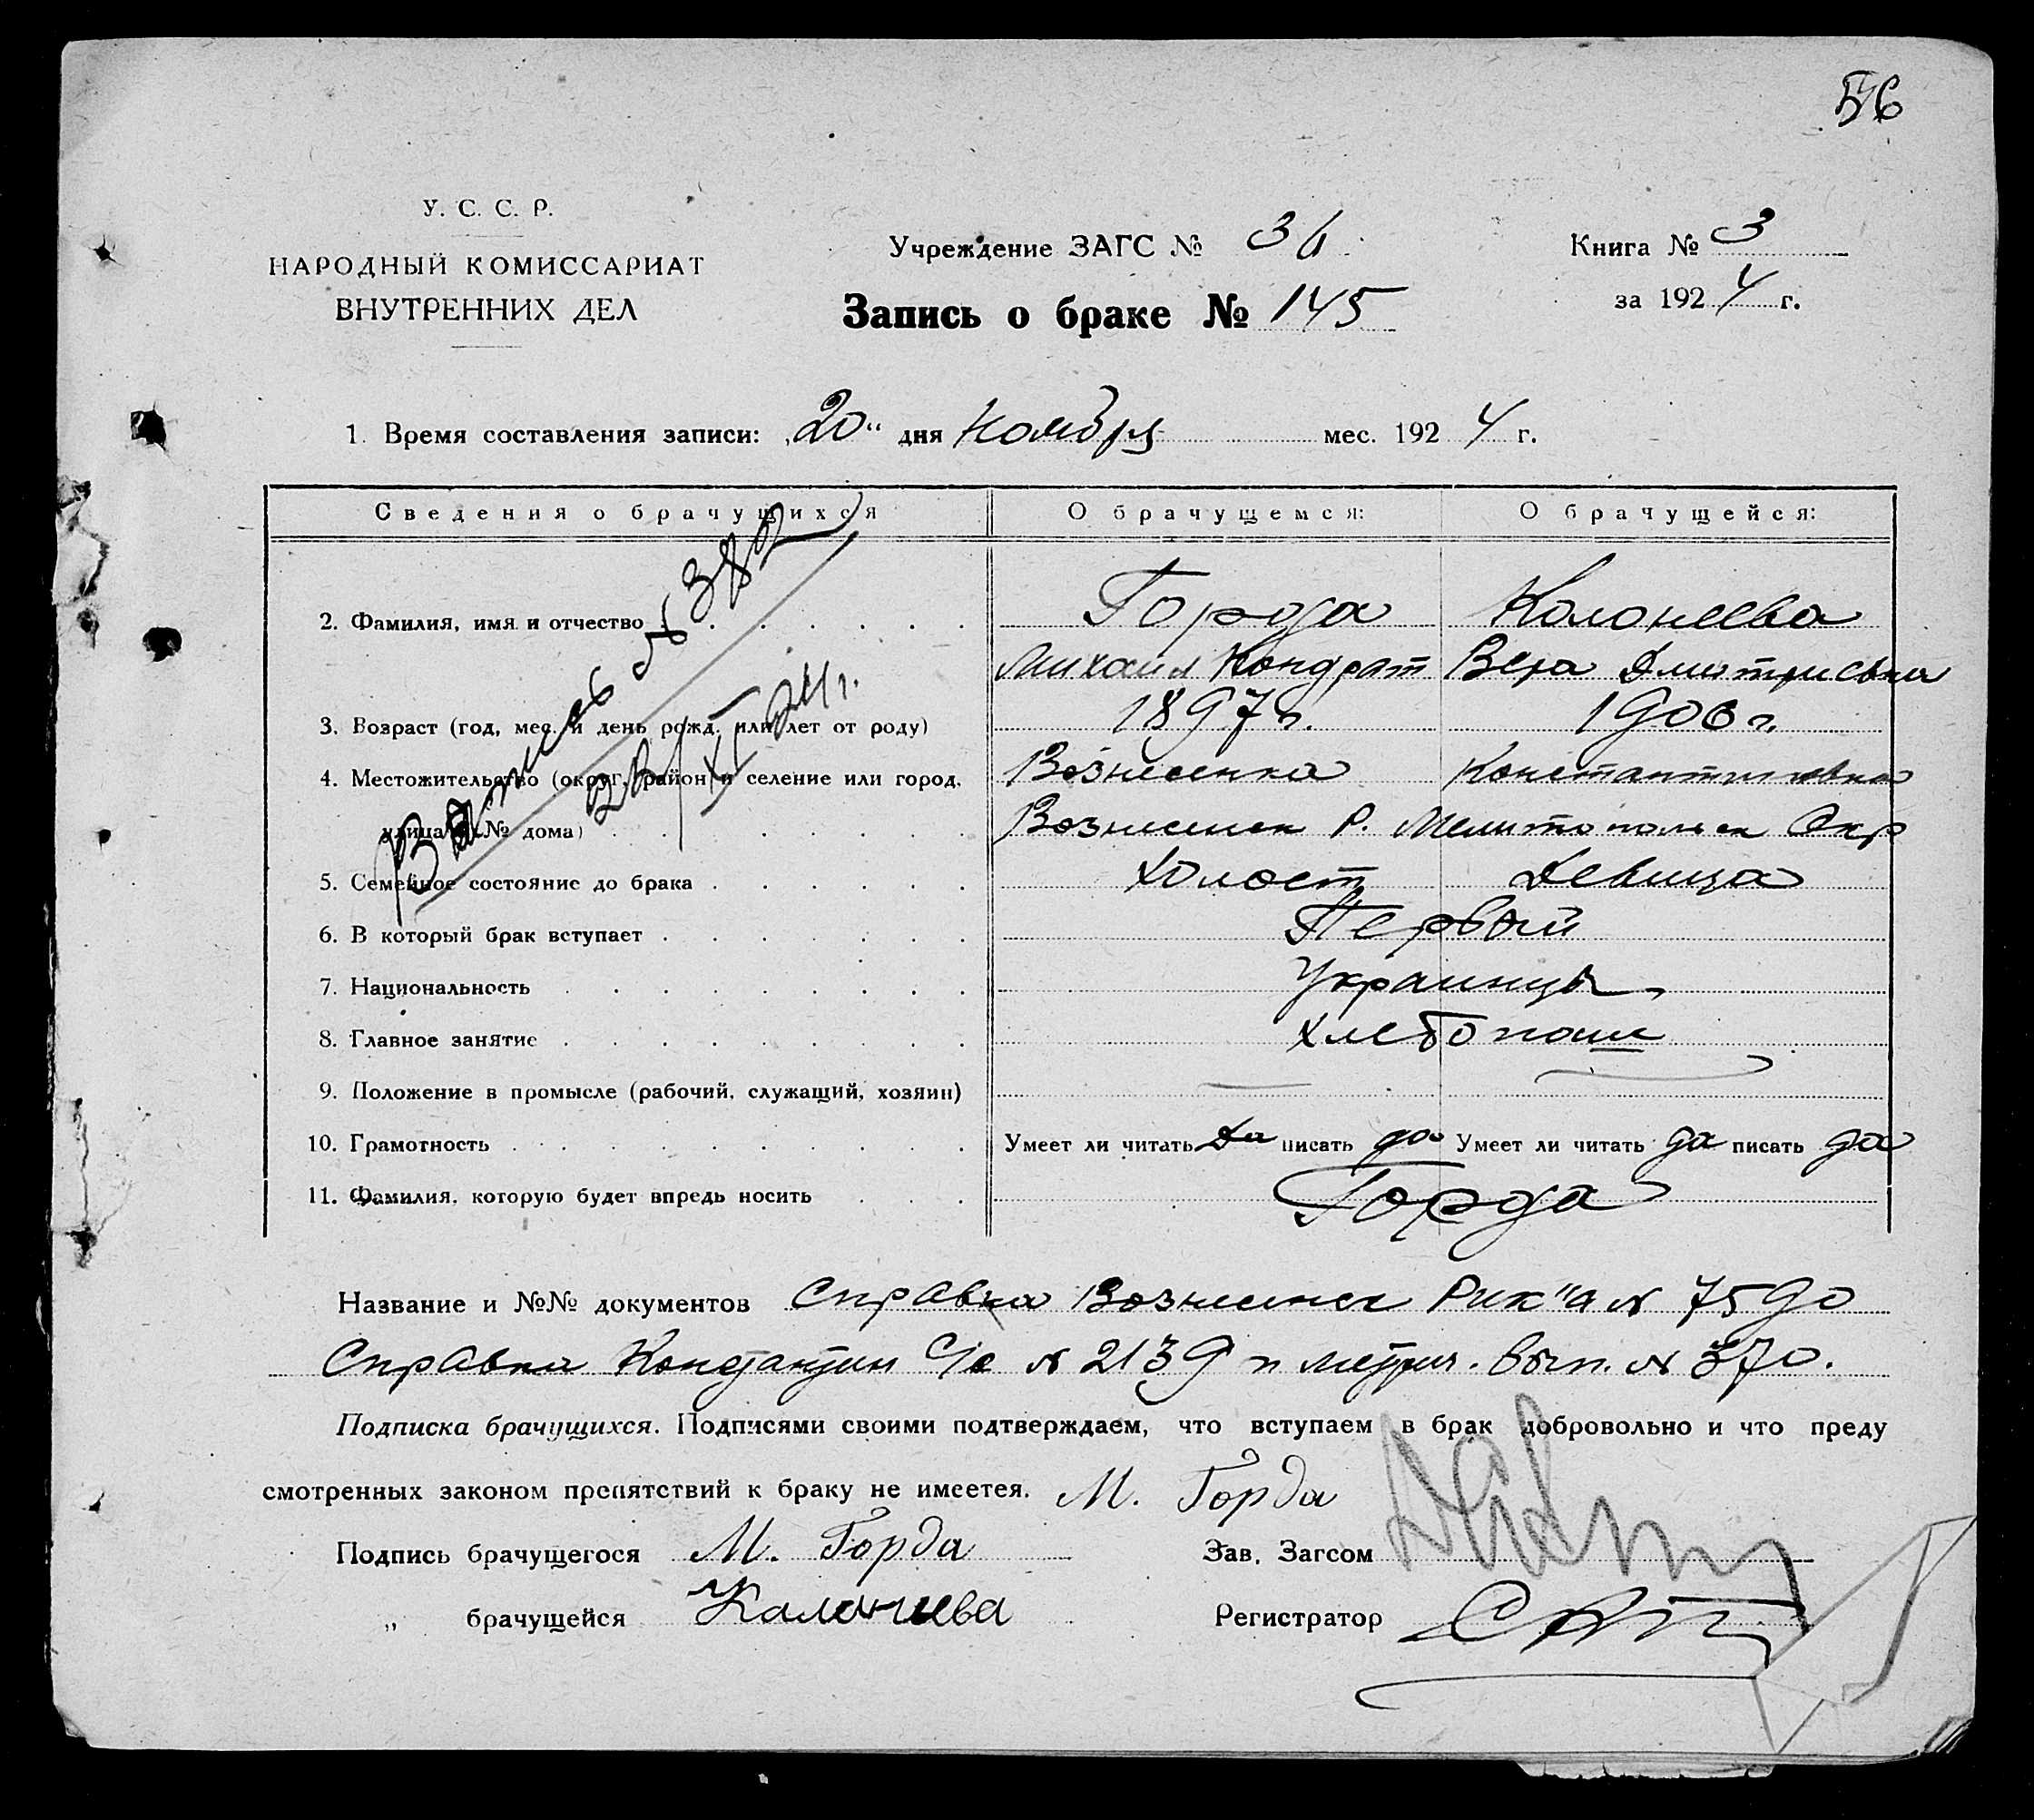 56
У. С. С. Р.
НАРОДНЫЙ КОМИССАРИАТ
ВНУТРЕННИХ ДЕЛ
Учреждение ЗАГС № 36
Книга № 3
за 1924 г.
Запись о браке № 145
1. Время составления записи: „20“ дня Ноября мес. 1924 г.
Сведения о брачущихся О брачущемся: О брачущейся:
2. Фамилия, имя и отчество . . . . . . Горда Колонеева
Михаил Кондрат Вера Дмитриевна
3. Возраст (год, мес. и день рожд. или лет от роду) 1897 г. 1906 г.
4. Местожительство (округ, район и селение или город, Вознесенка Константиновка
улица и № дома) . . . . . . Вознесенск Р. Мелитопольск Окр
5. Семейное состояние до брака . . . . . . Холост Девица
6. В который брак вступает . . . . . . . Первый
7. Национальность . . . . . . . . . Украинцы
8. Главное занятие . . . . . . . . . Хлебопаш
9. Положение в промысле (рабочий, служащий, хозяин)
10. Грамотность . . . . . . . . . . Умеет ли читать Да писать да Умеет ли читать да писать да
11. Фамилия, которую будет впредь носить . . . Горда
№ 382
XI 24 г.
Название и №№ документов Справка Вознесенск Рик"а № 7590
Справка Константин С/с № 2139 и метрич. вып. № 370.
Подписка брачущихся. Подписями своими подтверждаем, что вступаем в брак добровольно и что преду
смотренных законом препятствий к браку не имеется. М. Горда
Подпись брачущегося М. Горда Зав. Загсом
„ брачущейся Калонеева Регистратор